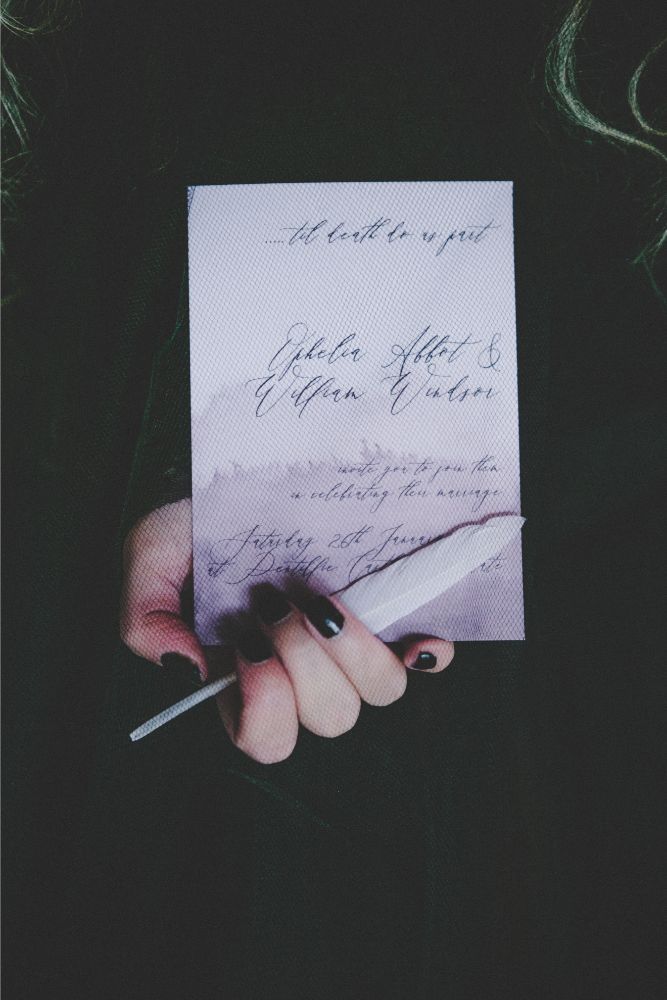 .....til death do us part
Ophelia Abbot &
William Windsor
invite you to join them
in celebrating their marriage
Saturday 26th
at